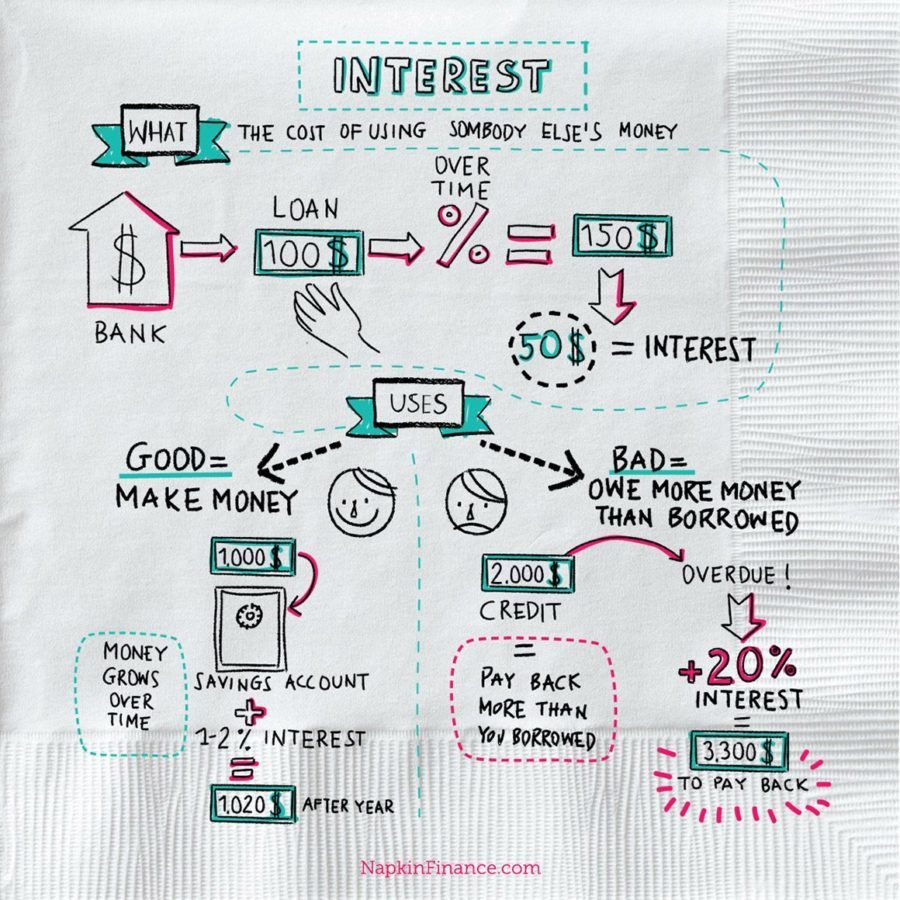 INTEREST
WHAT
THE COST OF USING SOMBODY ELSE'S MONEY
BANK
$
LOAN
100$
OVER
TIME
%
=
150$
50$ = INTEREST
USES
GOOD=
MAKE MONEY
1,000$
SAVINGS ACCOUNT
+
1-2% INTEREST
=
1,020$ AFTER YEAR
MONEY
GROWS
OVER
TIME
BAD=
OWE MORE MONEY
THAN BORROWED
2.000$
CREDIT
=
PAY BACK
MORE THAN
YOU BORROWED
OVERDUE!
+20%
INTEREST
=
3,300$
TO PAY BACK
NapkinFinance.com